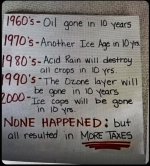 1960's - Oil gone in 10 years
1970's - Another Ice Age in 10 yrs.
1980's - Acid Rain will destroy
all crops in 10 yrs.
1990's - The Ozone layer will
be gone in 10 years
2000 - Ice caps will be gone
in 10 yrs.
NONE HAPPENED; but
all resulted in MORE TAXES